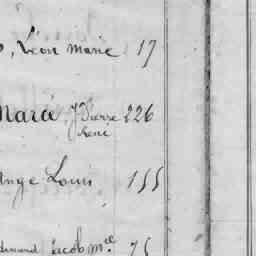 , Léon Marie 17
Marie, Jn Pierre 226
René
Ange Louis 155
Jacob Mel 75